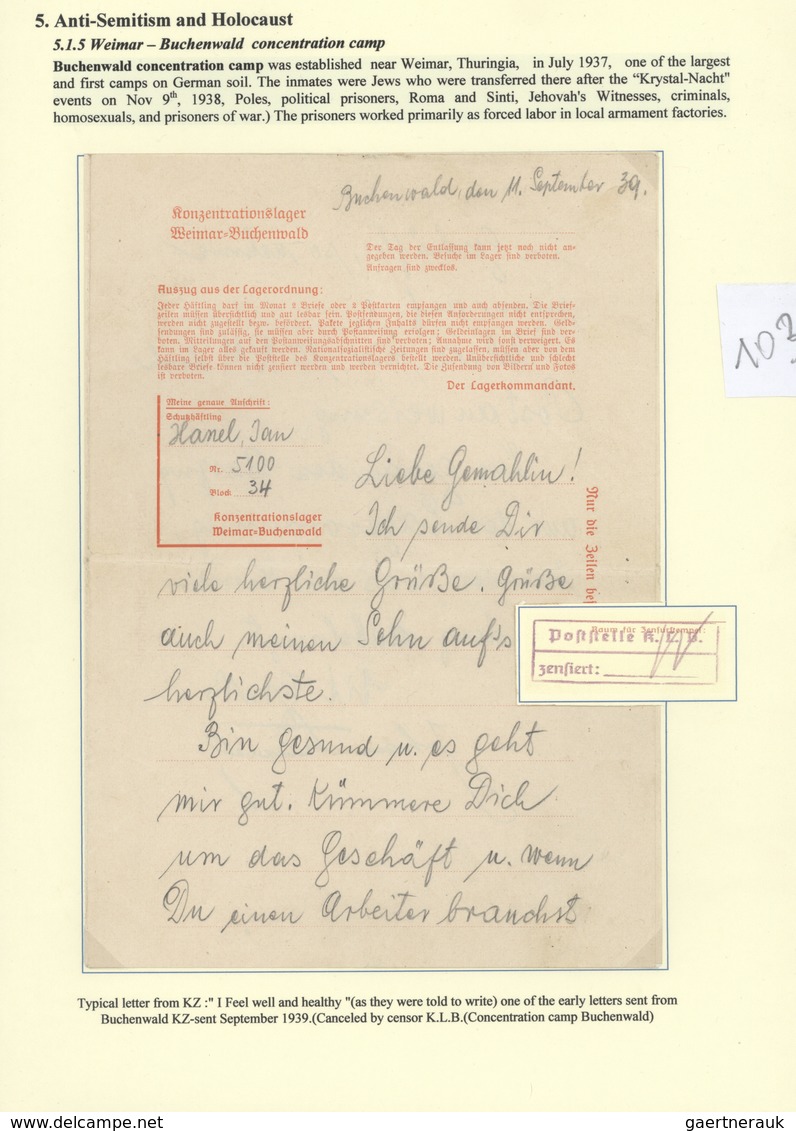 5. Anti-Semitism and Holocaust
5.1.5 Weimar – Buchenwald concentration camp
Buchenwald concentration camp was established near Weimar, Thuringia, in July 1937, one of the largest
and first camps on German soil. The inmates were Jews who were transferred there after the “Krystal-Nacht"
events on Nov 9th, 1938, Poles, political prisoners, Roma and Sinti, Jehovah's Witnesses, criminals,
homosexuals, and prisoners of war.) The prisoners worked primarily as forced labor in local armament factories.
Buchenwald, den 11. September 39.
Konzentrationslager
Weimar=Buchenwald
Der Tag der Entlassung kann jetzt noch nicht an=
gegeben werden. Besuche im Lager sind verboten.
Anfragen sind zwecklos.
Auszug aus der Lagerordnung:
Jeder Häftling darf im Monat 2 Briefe oder 2 Postkarten empfangen und auch absenden. Die Brief=
zeilen müssen übersichtlich und gut lesbar sein. Postsendungen, die diesen Anforderungen nicht entsprechen,
werden nicht zugestellt bezw. befördert. Pakete jeglichen Inhalts dürfen nicht empfangen werden. Geld=
sendungen sind zulässig, sie müssen aber durch Postanweisung erfolgen; Geldeinlagen im Brief sind ver=
boten. Mitteilungen auf den Postanweisungsabschnitten sind verboten; Annahme wird sonst verweigert. Es
kann im Lager alles gekauft werden. Nationalsozialistische Zeitungen sind zugelassen, müssen aber von dem
Häftling selbst über die Poststelle des Konzentrationslagers bestellt werden. Unübersichtliche und schlecht
lesbare Briefe können nicht zensiert werden und werden vernichtet. Die Zusendung von Bildern und Fotos
ist verboten.
Der Lagerkommandant.
103
Meine genaue Anschrift:
Schutzhäftling
Hanel, Jan
Nr. 5100
Block 34
Konzentrationslager
Weimar=Buchenwald
Nur die Zeilen bes
Liebe Gemahlin!
Ich sende Dir
viele herzliche Grüße. Grüße
auch meinen Sohn auf's
herzlichste.
Raum für Zensurstempel:
Poststelle K. L. B.
zensiert:
Bin gesund u. es geht
mir gut. Kümmere Dich
um das Geschäft u. wenn
Du einen Arbeiter brauchst
Typical letter from KZ :" I Feel well and healthy "(as they were told to write) one of the early letters sent from
Buchenwald KZ-sent September 1939.(Canceled by censor K.L.B.(Concentration camp Buchenwald)
www.delcampe.net
gaertnerauk